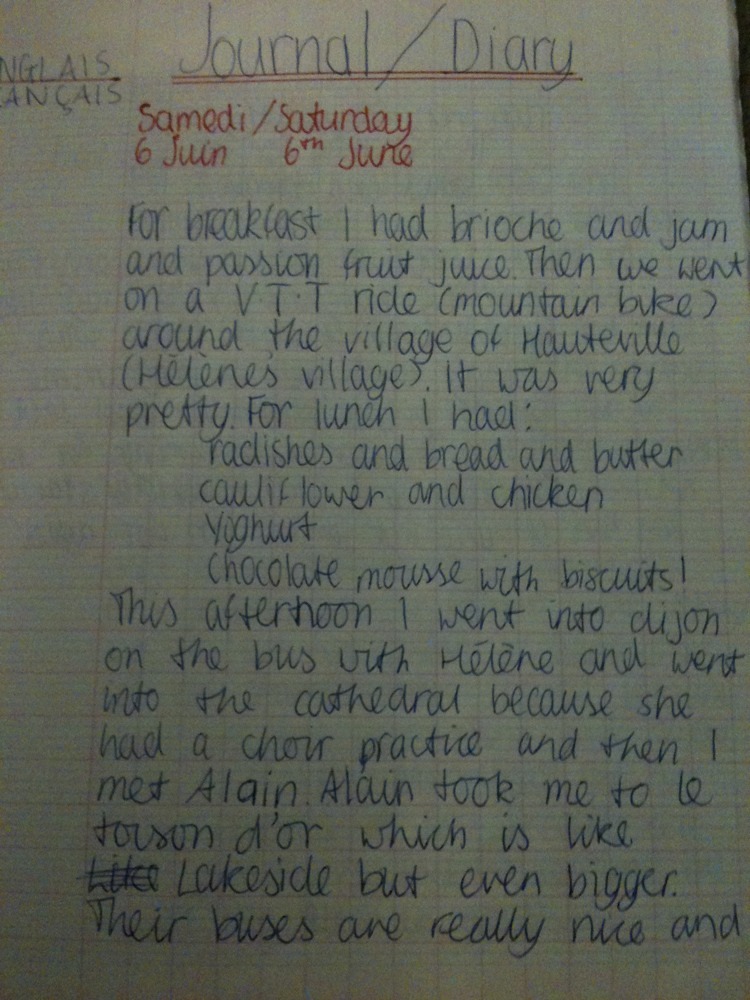 Journal / Diary
NGLAIS
ANÇAIS
Samedi/Saturday
6 Juin 6th June
For breakfast I had brioche and jam
and passion fruit juice. Then we went
on a V.T.T ride (mountain bike)
around the village of Hauteville
(Hélène's village). It was very
pretty. For lunch I had:
radishes and bread and butter
cauliflower and chicken
Yoghurt
Chocolate mousse with biscuits!
This afternoon I went into dijon
on the bus with Hélène and went
into the cathedral because she
had a choir practice and then I
met Alain. Alain took me to le
toison d'or which is like
Like Lakeside but even bigger.
Their buses are really nice and